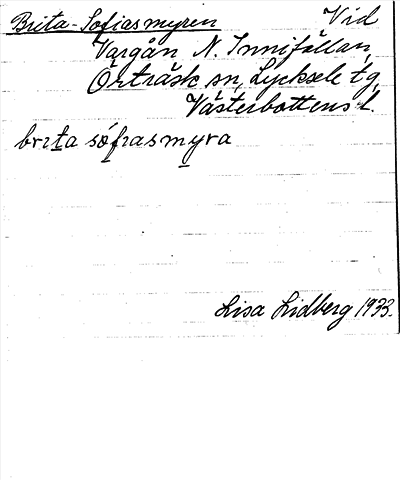 Brita-Sofiasmyren Vid
Vargån N. Innifällan,
Örträsk sn, Lycksele tg,
Västerbottens l.
brıta sófıasmyra
Lisa Lidberg 1933.